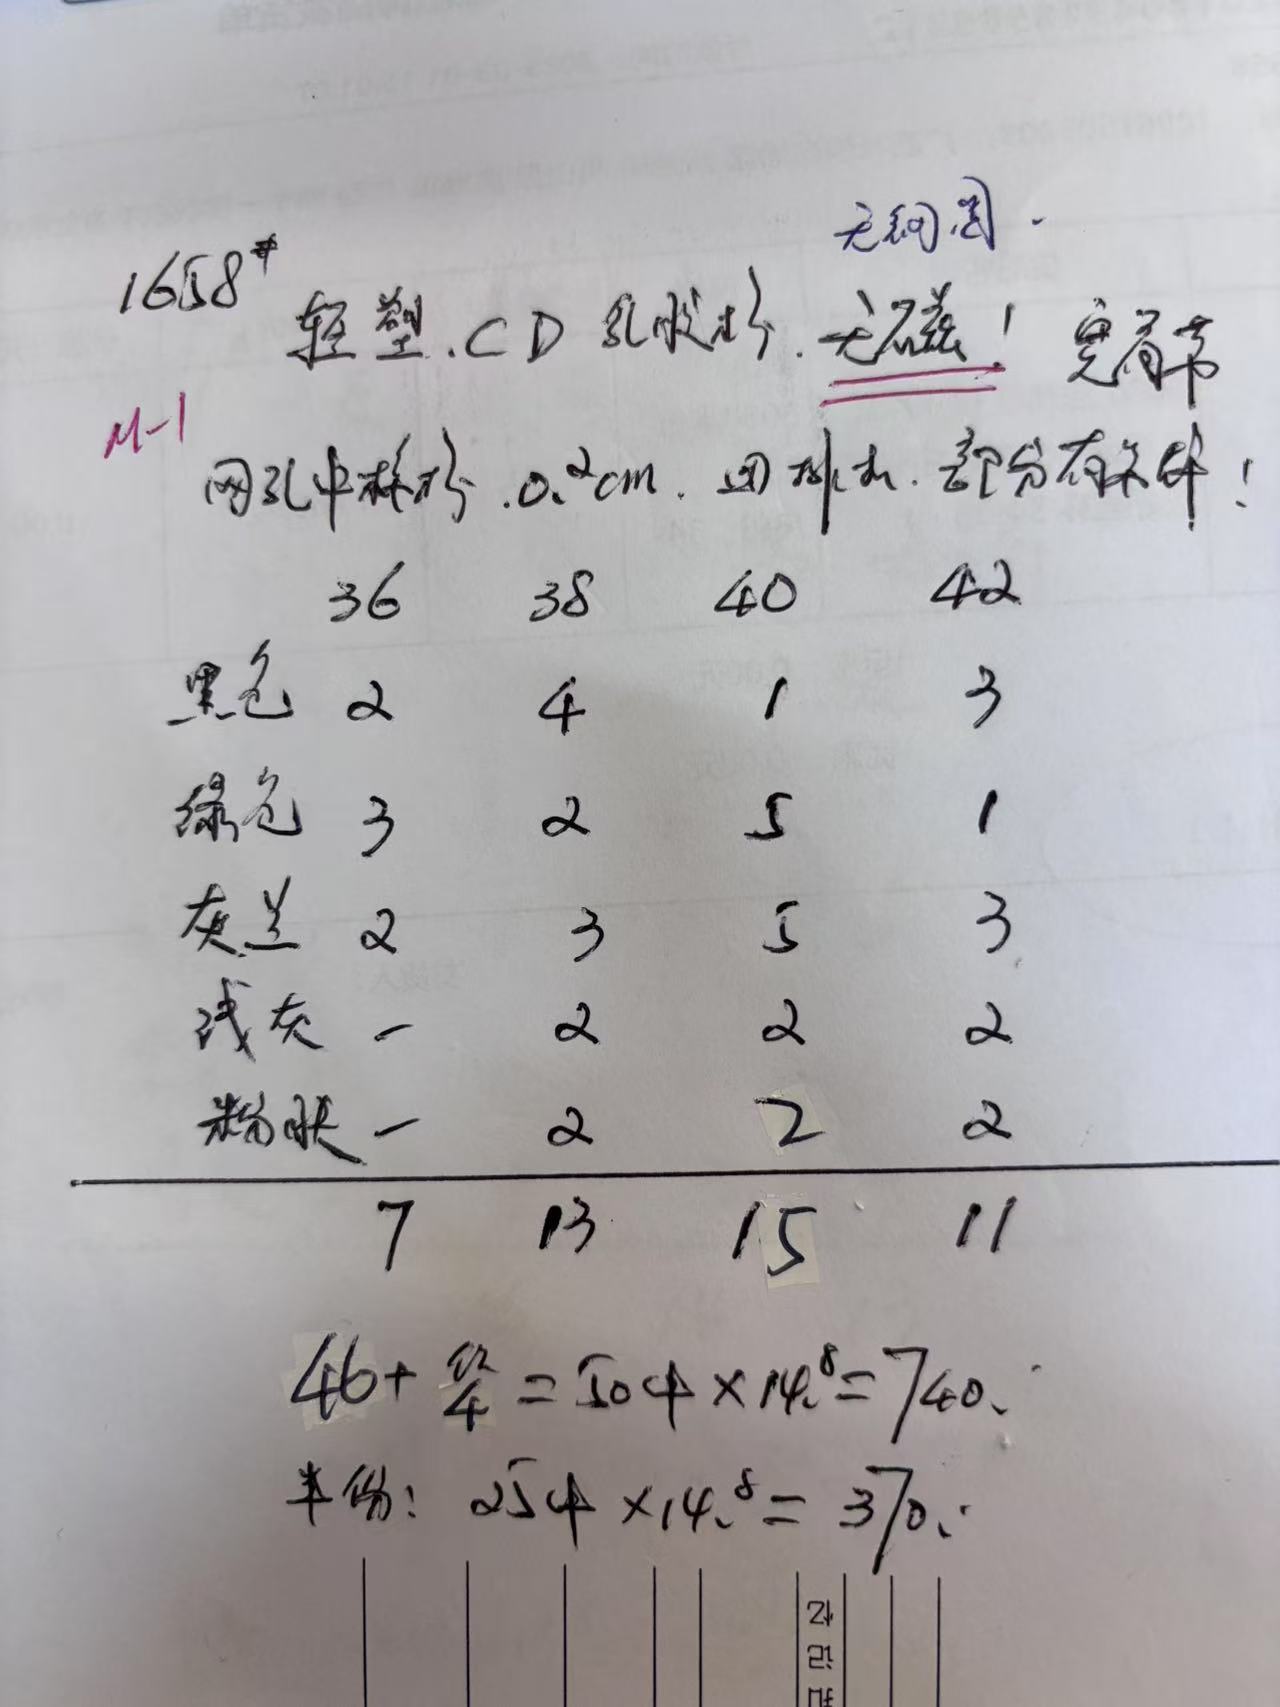 无钢圈.
1658# 轻塑.CD 乳胶杯.无磁! 宽肩带
M-1
网孔中模杯.0.2cm.四排扣.部分有条纹!
36 38 40 42
黑色 2 4 1 3
绿色 3 2 5 1
灰兰 2 3 5 3
浅灰 - 2 2 2
粉肤 - 2 2 2
7 13 15 11
46+ 4 =50中×14.8=740.
半份: 25中×14.8=370.